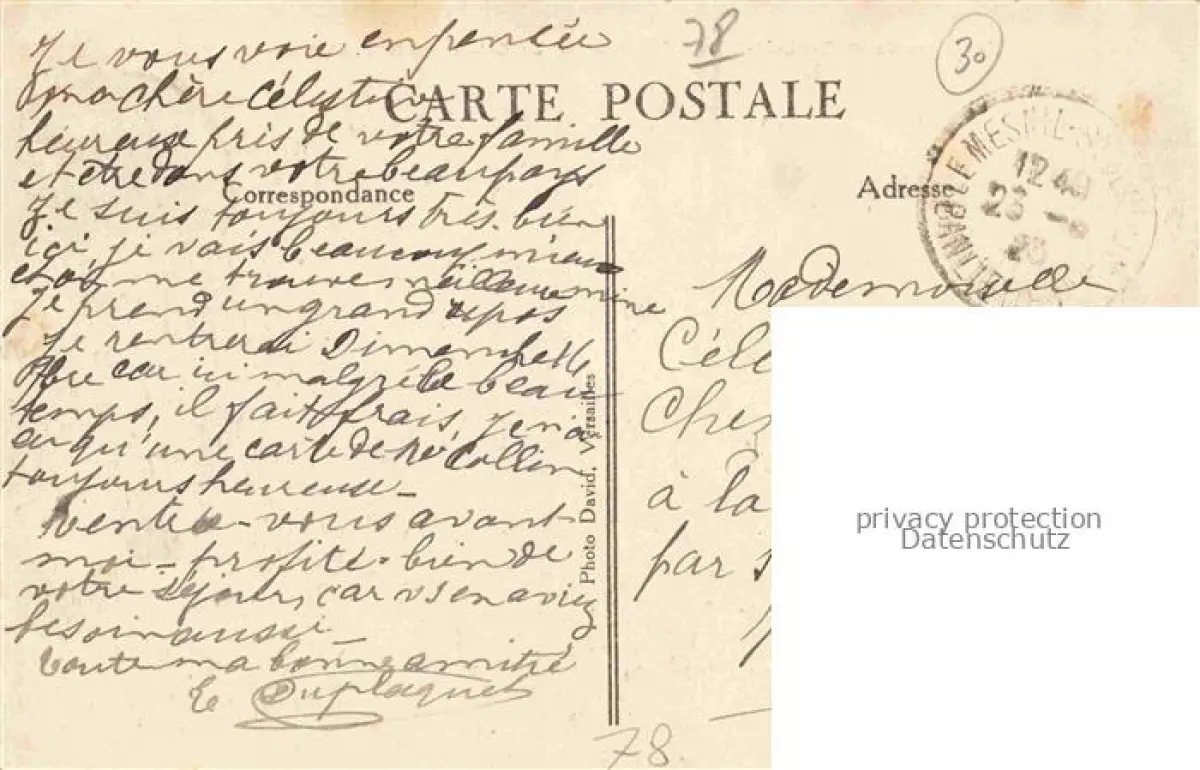 78
30
CARTE POSTALE
Correspondance
Adresse
LE MESNIL-S
12 4
Je vous voie en pensée
ma chère Célestine
heureuse près de votre famille
et être dans votre beau pays
Je suis toujours très bien
ici, je vais beaucoup mieux
et on me trouve meilleure mine
Je prend un grand repos
Je rentrerai Dimanche
car ici malgré le beau
temps, il fait frais, Je n'ai
qu'une carte de
toujours heureuse_
vous avant
moi_ profite bien de
votre séjour, car vs en aviez
besoin aussi_
toute ma bonne amitié
E Duplaquet
Photo David, Versailles
Mademoiselle
Céle
Chez
à la
par s
78.
privacy protection
Datenschutz